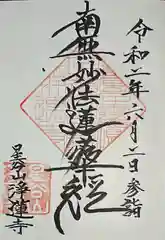 令和二年六月二日参詣
南無妙法蓮華経
星谷山浄蓮寺